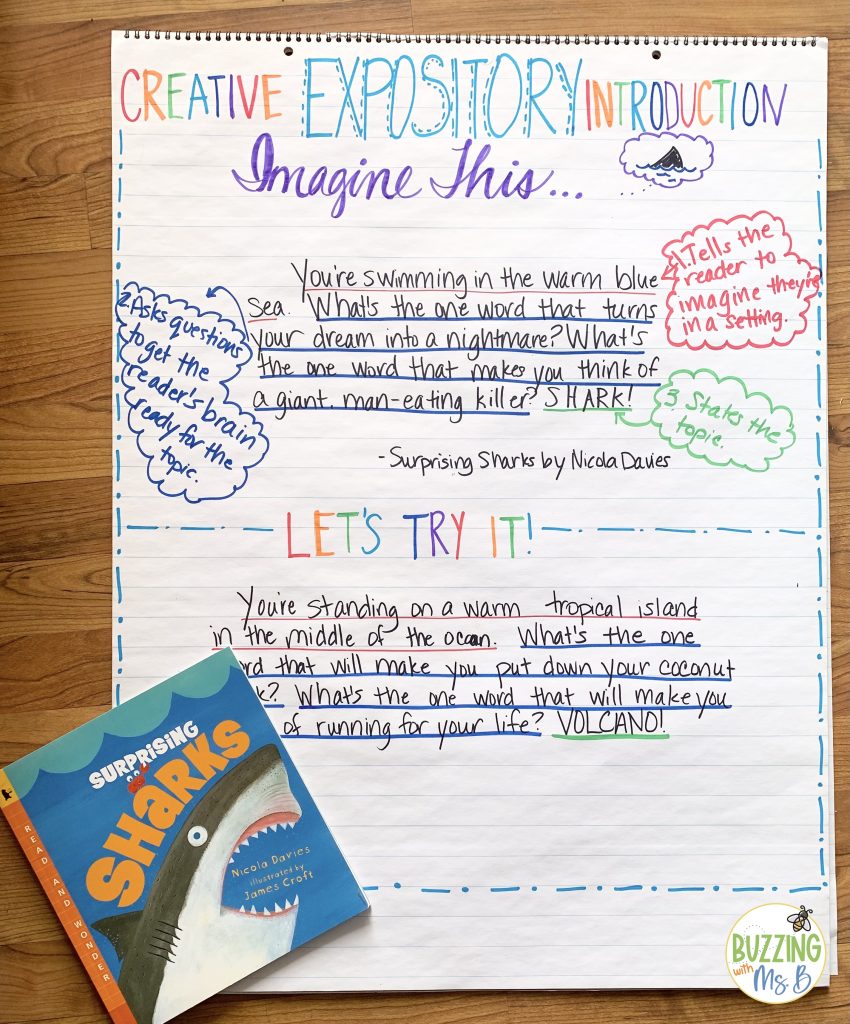 CREATIVE EXPOSITORY INTRODUCTION
Imagine This...
You're swimming in the warm blue
sea. What's the one word that turns
your dream into a nightmare? What's
the one word that makes you think of
a giant, man-eating killer? SHARK!
- Surprising Sharks by Nicola Davies
1. Tells the
reader to
imagine they're
in a setting.
2. Asks questions
to get the
reader's brain
ready for the
topic.
3. States the
topic.
LET'S TRY IT!
You're standing on a warm tropical island
in the middle of the ocean. What's the one
that will make you put down your coconut
? What's the one word that will make you
of running for your life? VOLCANO!
SURPRISING
SHARKS
Nicola Davies
illustrated by
James Croft
READ AND WONDER
BUZZING
with
Ms. B